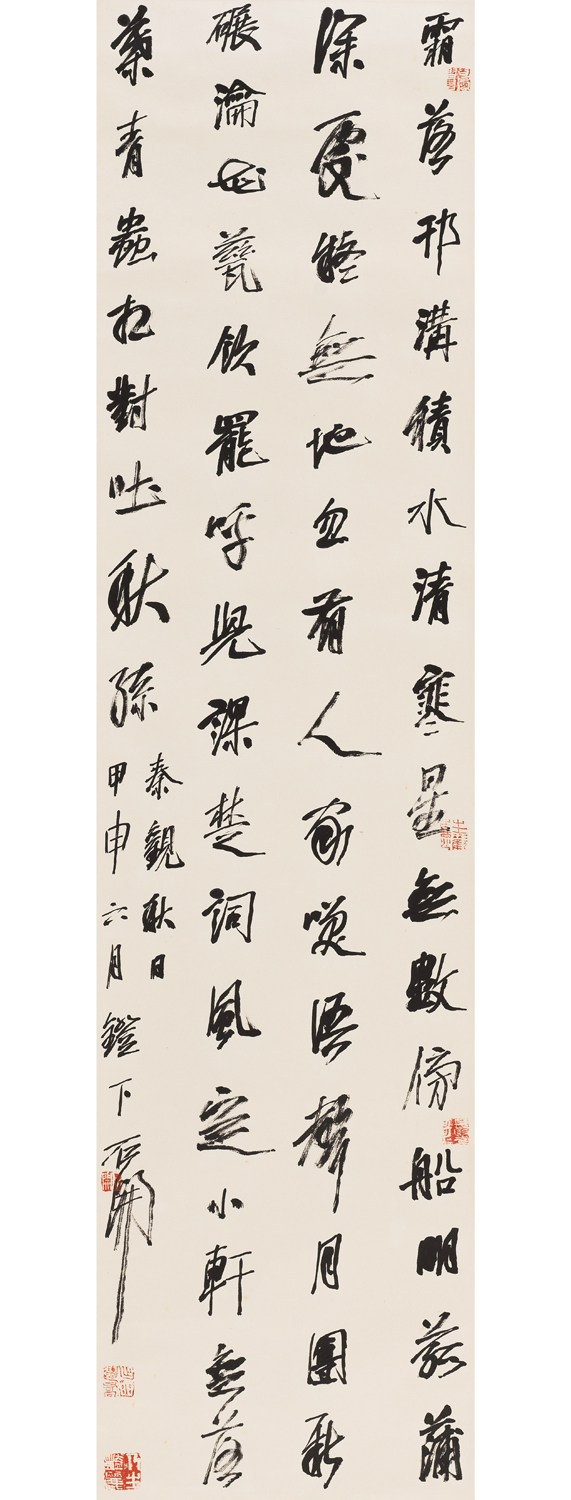 霜落邗溝積水清寒星無數傍船明菰蒲
深處疑無地忽有人家笑語聲月團新
碾瀹花瓷飲罷呼兒課楚詞風定小軒無落
葉青蟲相對吐秋絲
秦觀秋日
甲申六月鐙下石開